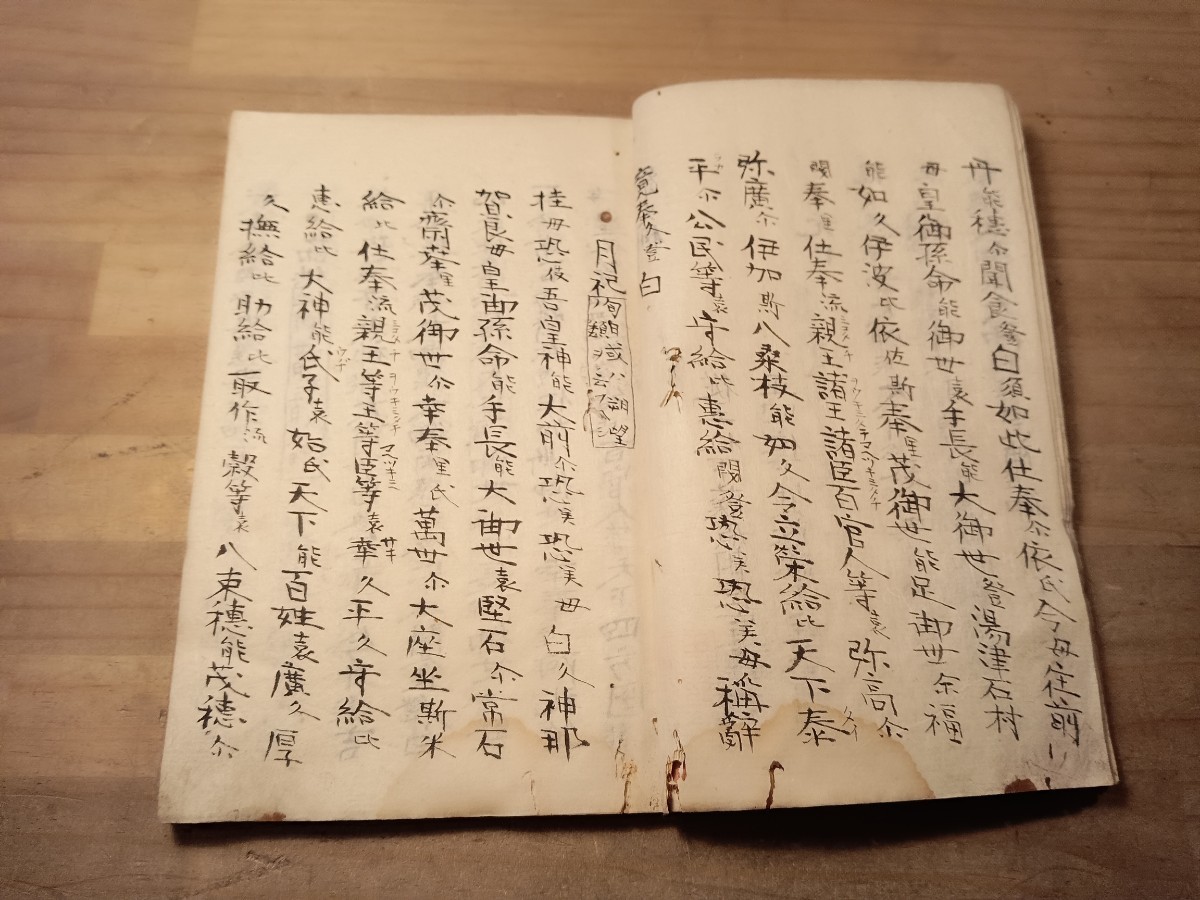 丹能穂尓聞食登白須如此仕奉尓依氐今毋往前
毋皇御孫命能御世袁手長能大御世登湯津石村
能如久伊波比依佐斯奉里茂御世能足御世尓福
閇奉里仕奉流親王諸王諸臣百官人等袁弥高尓
弥廣尓伊加斯八桑枝能如久令立榮給比天下泰
平尓公民等袁守給比惠給閇登恐美恐美毋稱辭
竟奉久登白
月祀
挂毋恐伎吾皇神能大前尓恐美恐美毋白久神那
賀良毋皇御孫命能手長能大御世袁堅石尓常石
尓齋奉里茂御世尓幸奉里氐萬世尓大座坐斯米
給比仕奉流親王等王等臣等袁幸久平久守給比
惠給比大神能氏子袁始氐天下能百姓袁廣久厚
久撫給比助給比取作流穀等袁八束穂能茂穂尓